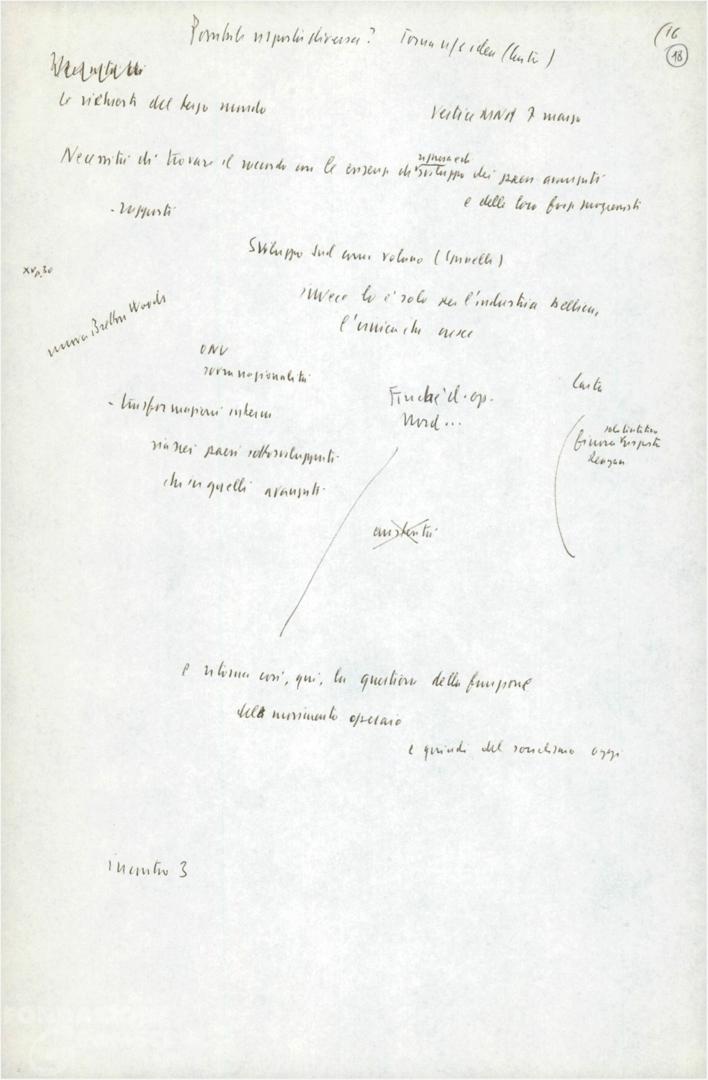 Possibile risposta diversa? Torna idea (Carta)
16
18
Le richieste del terzo mondo
Vertice MNA 7 marzo
Necessità di trovare il raccordo con le esigenze di sviluppo dei paesi avanzati
ripresa ed
e delle loro forze progressiste
- rapporti
Sviluppo Sud come volano (Spinelli)
XV, p. 30
invece lo è solo per l'industria bellica,
l'unica che cresce
nuova Bretton Woods
ONU
sovranazionalità
- trasformazioni interne
Finché d. op.
Nord...
Carta
sia nei paesi sottosviluppati
finora risposta
Reagan
che in quelli avanzati
austerità
e ritorna così, qui, la questione della funzione
del movimento operaio
e quindi del socialismo oggi
incontro 3